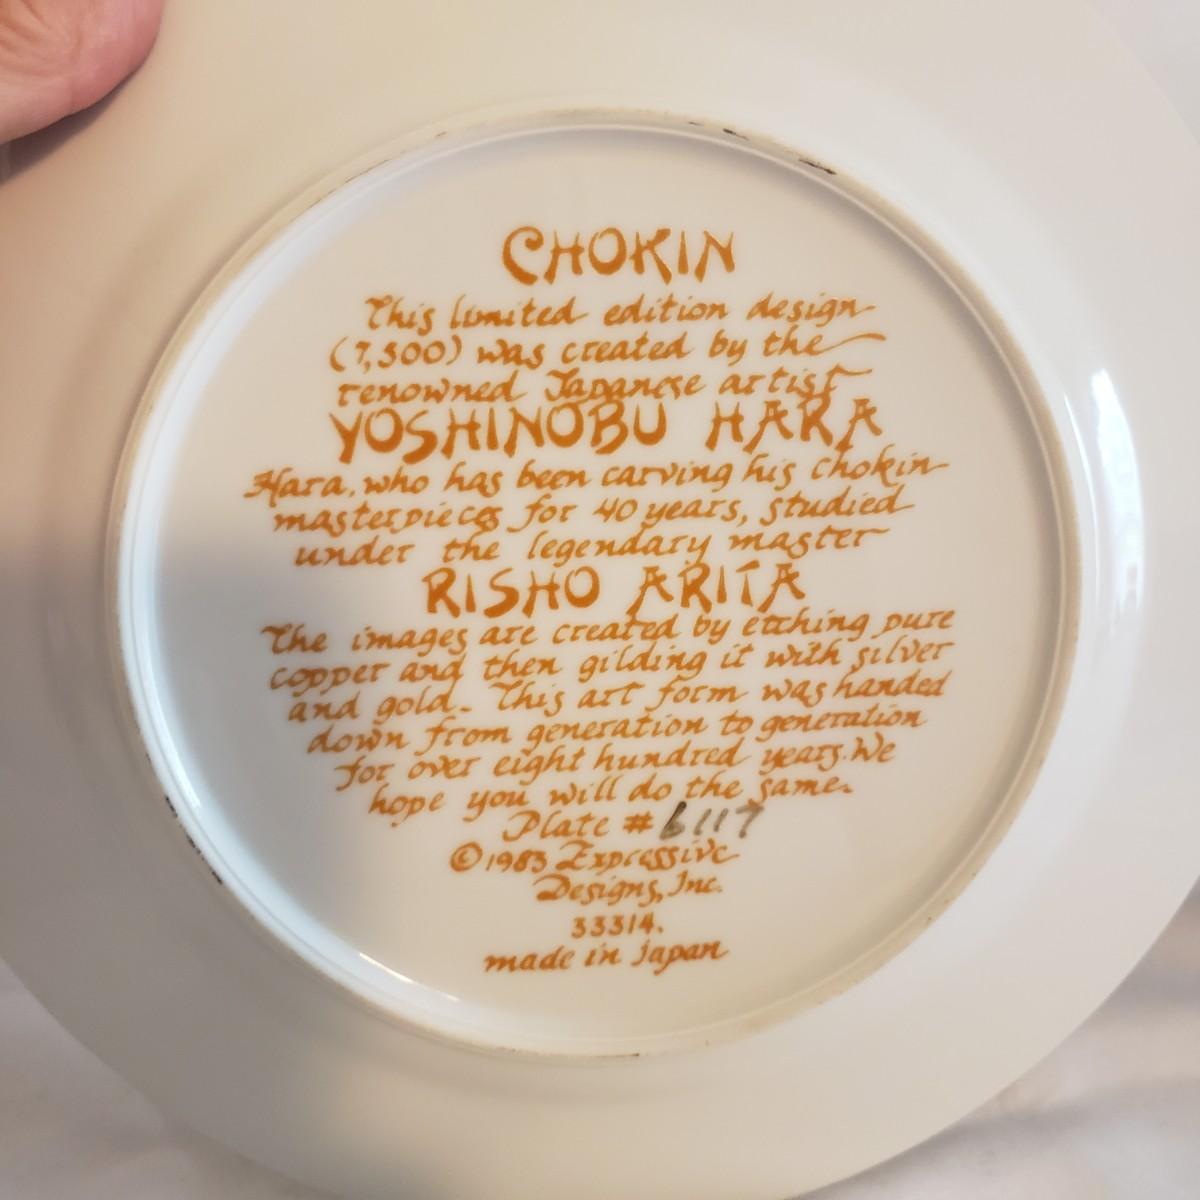 CHOKIN
This limited edition design
(7,500) was created by the
renowned Japanese artist
YOSHINOBU HARA
Hara, who has been carving his chokin
masterpieces for 40 years, studied
under the legendary master
RISHO ARITA
The images are created by etching pure
copper and then gilding it with silver
and gold. This art form was handed
down from generation to generation
for over eight hundred years. We
hope you will do the same.
Plate # 6117
©1983 Expressive
Designs, Inc.
33314.
made in japan